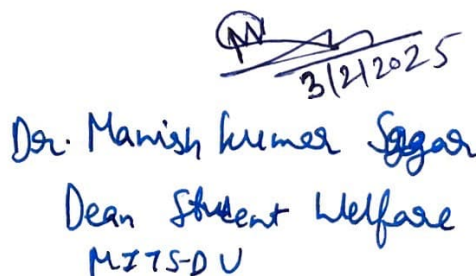 3/2/2025
Dr. Manish Kumar Sagar
Dean Student Welfare
MITS-DU